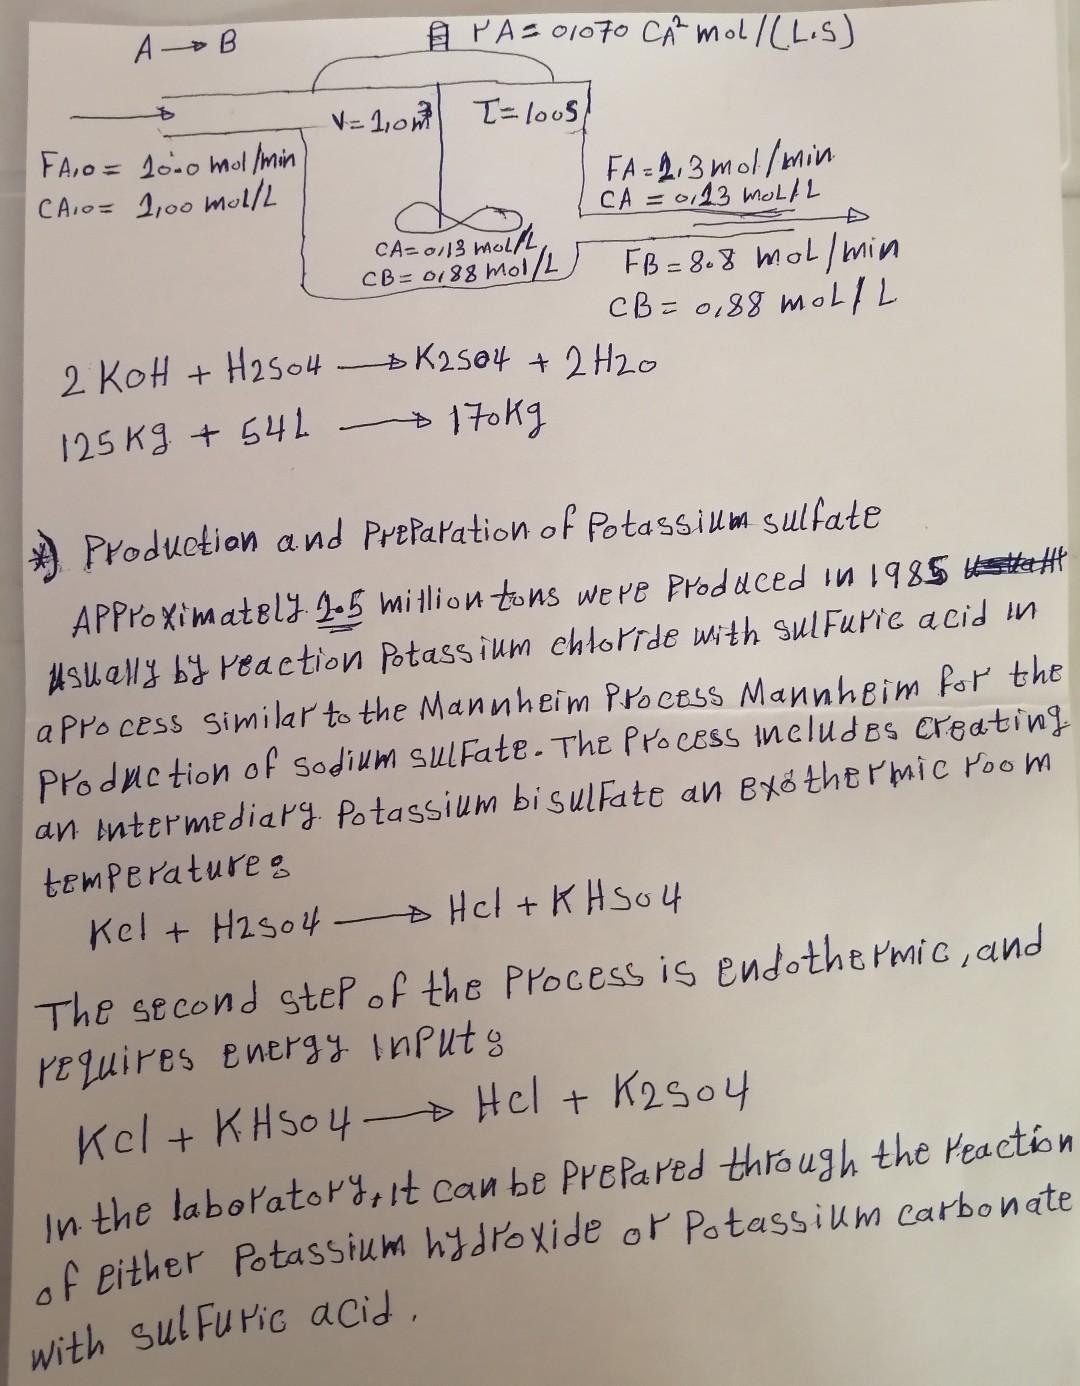 A → B
rA = 0,070 CA² mol/(L.S)
V = 1,0 m³
τ = 100S
FA,0 = 10.0 mol/min
CA,0 = 1,00 mol/L
FA = 1,3 mol/min
CA = 0,13 moL/L
CA = 0,13 mol/L
CB = 0,88 mol/L
FB = 8.8 moL/min
CB = 0,88 moL/L
2 KOH + H2SO4 → K2SO4 + 2 H2O
125 Kg + 54 L → 170 Kg
*) Production and Preparation of Potassium sulfate
Approximately 1.5 million tons were Produced in 1985
usually by reaction Potassium chloride with sulfuric acid in
a process similar to the Mannheim Process Mannheim for the
Production of sodium sulfate. The Process includes creating
an intermediary Potassium bisulfate an exothermic room
temperature:
Kcl + H2SO4 → Hcl + KHSO4
The second step of the Process is endothermic, and
requires energy input:
Kcl + KHSO4 → Hcl + K2SO4
In the laboratory, it can be Prepared through the reaction
of either Potassium hydroxide or Potassium carbonate
with sulfuric acid.